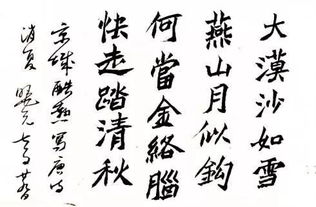 大漠沙如雪
燕山月似鈎
何當金絡腦
快走踏清秋
京城酷熱寫唐詩
消夏